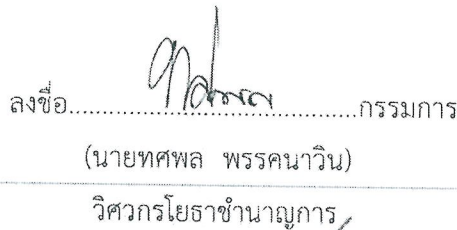 ลงชื่อ..............................................กรรมการ
(นายทศพล พรรคนาวิน)
วิศวกรโยธาชำนาญการ